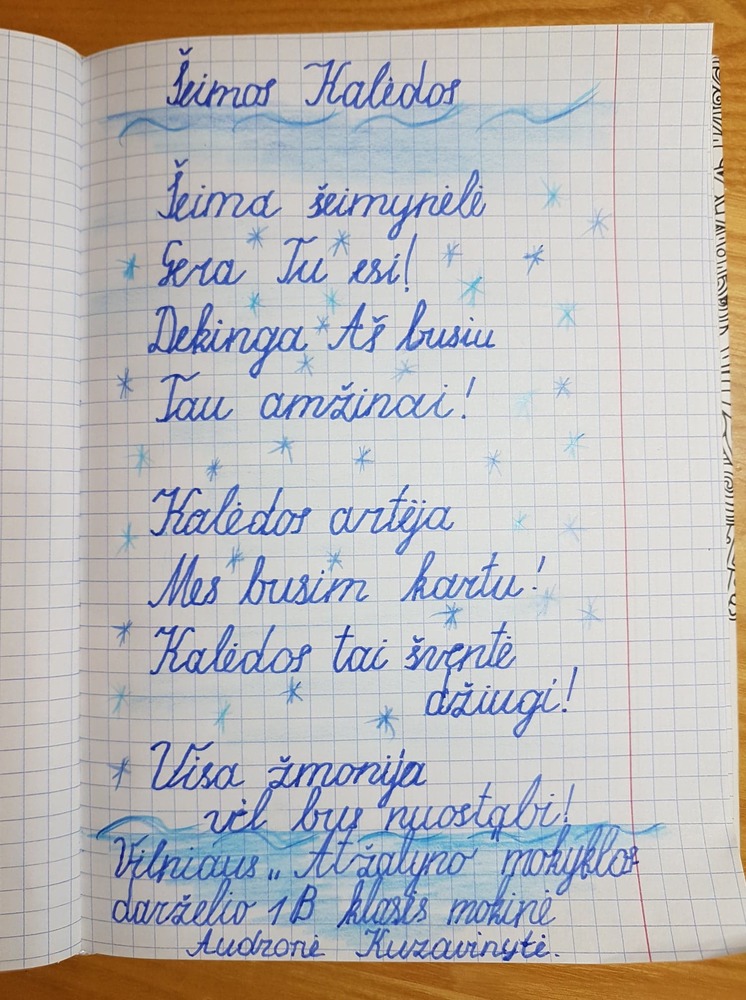 Šeimos Kalėdos
Šeima šeimynėlė
Gera Tu esi!
Dekinga Aš busiu
Tau amžinai!
Kalėdos artėja
Mes busim kartu!
Kalėdos tai šventė
džiugi!
Visa žmonija
vėl bus nuostąbi!
Vilniaus „Atžalyno mokyklos
darželio 1B klasės mokinė
Audronė Kuzavinytė.